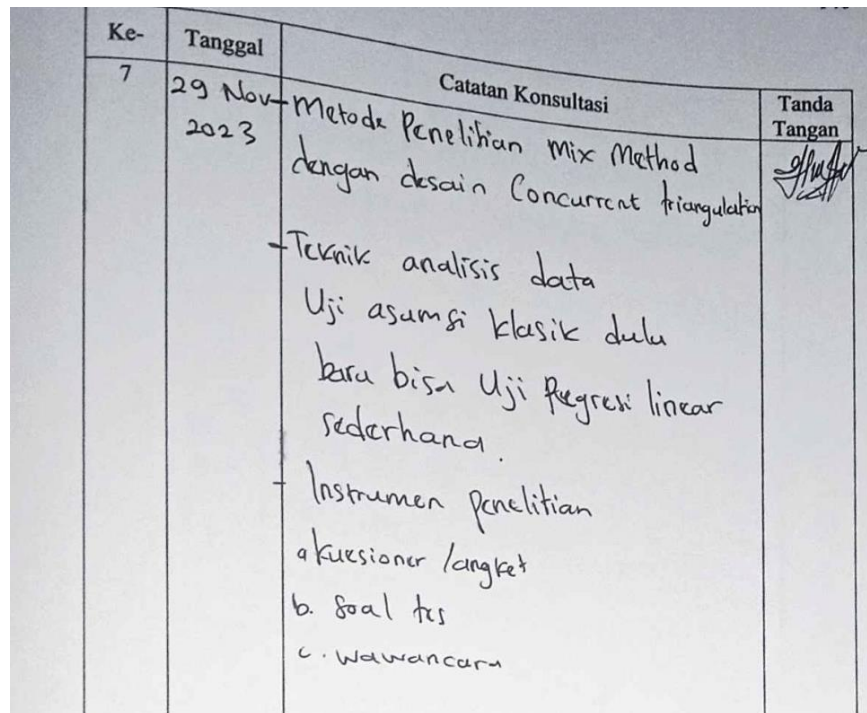 Ke-
Tanggal
Catatan Konsultasi
Tanda
Tangan
7
29 Nov
2023
- Metode Penelitian Mix Method
dengan desain Concurrent triangulation
- Teknik analisis data
Uji asumsi klasik dulu
baru bisa Uji Regresi linear
sederhana.
- Instrumen penelitian
a kuesioner /angket
b. Soal tes
c. wawancara